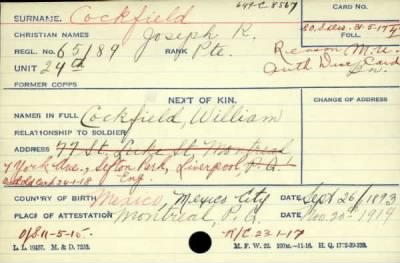 649-C-8567
SURNAME. Cockfield
CARD NO.
CHRISTIAN NAMES Joseph R.
FOLL.
REGL. NO. 65189 RANK Pte.
Reason M.U.
UNIT 24th
Auth Disc Card
FORMER CORPS
NEXT OF KIN.
CHANGE OF ADDRESS
NAMES IN FULL Cockfield, William
RELATIONSHIP TO SOLDIER
ADDRESS 77 St. Luke St Montreal
7 York Ave., Sefton Park, Liverpool, P.Q.
Eng.
COUNTRY OF BIRTH Mexico, Mexico City DATE Sept 26/1893
PLACE OF ATTESTATION Montreal, P.Q. DATE Nov. 20th 1914
O/S 11-5-15. R/C 23-1-17
L. L. 10437. M. & D. 7233. M. F. W. 22. H. Q. 1772-39-338.